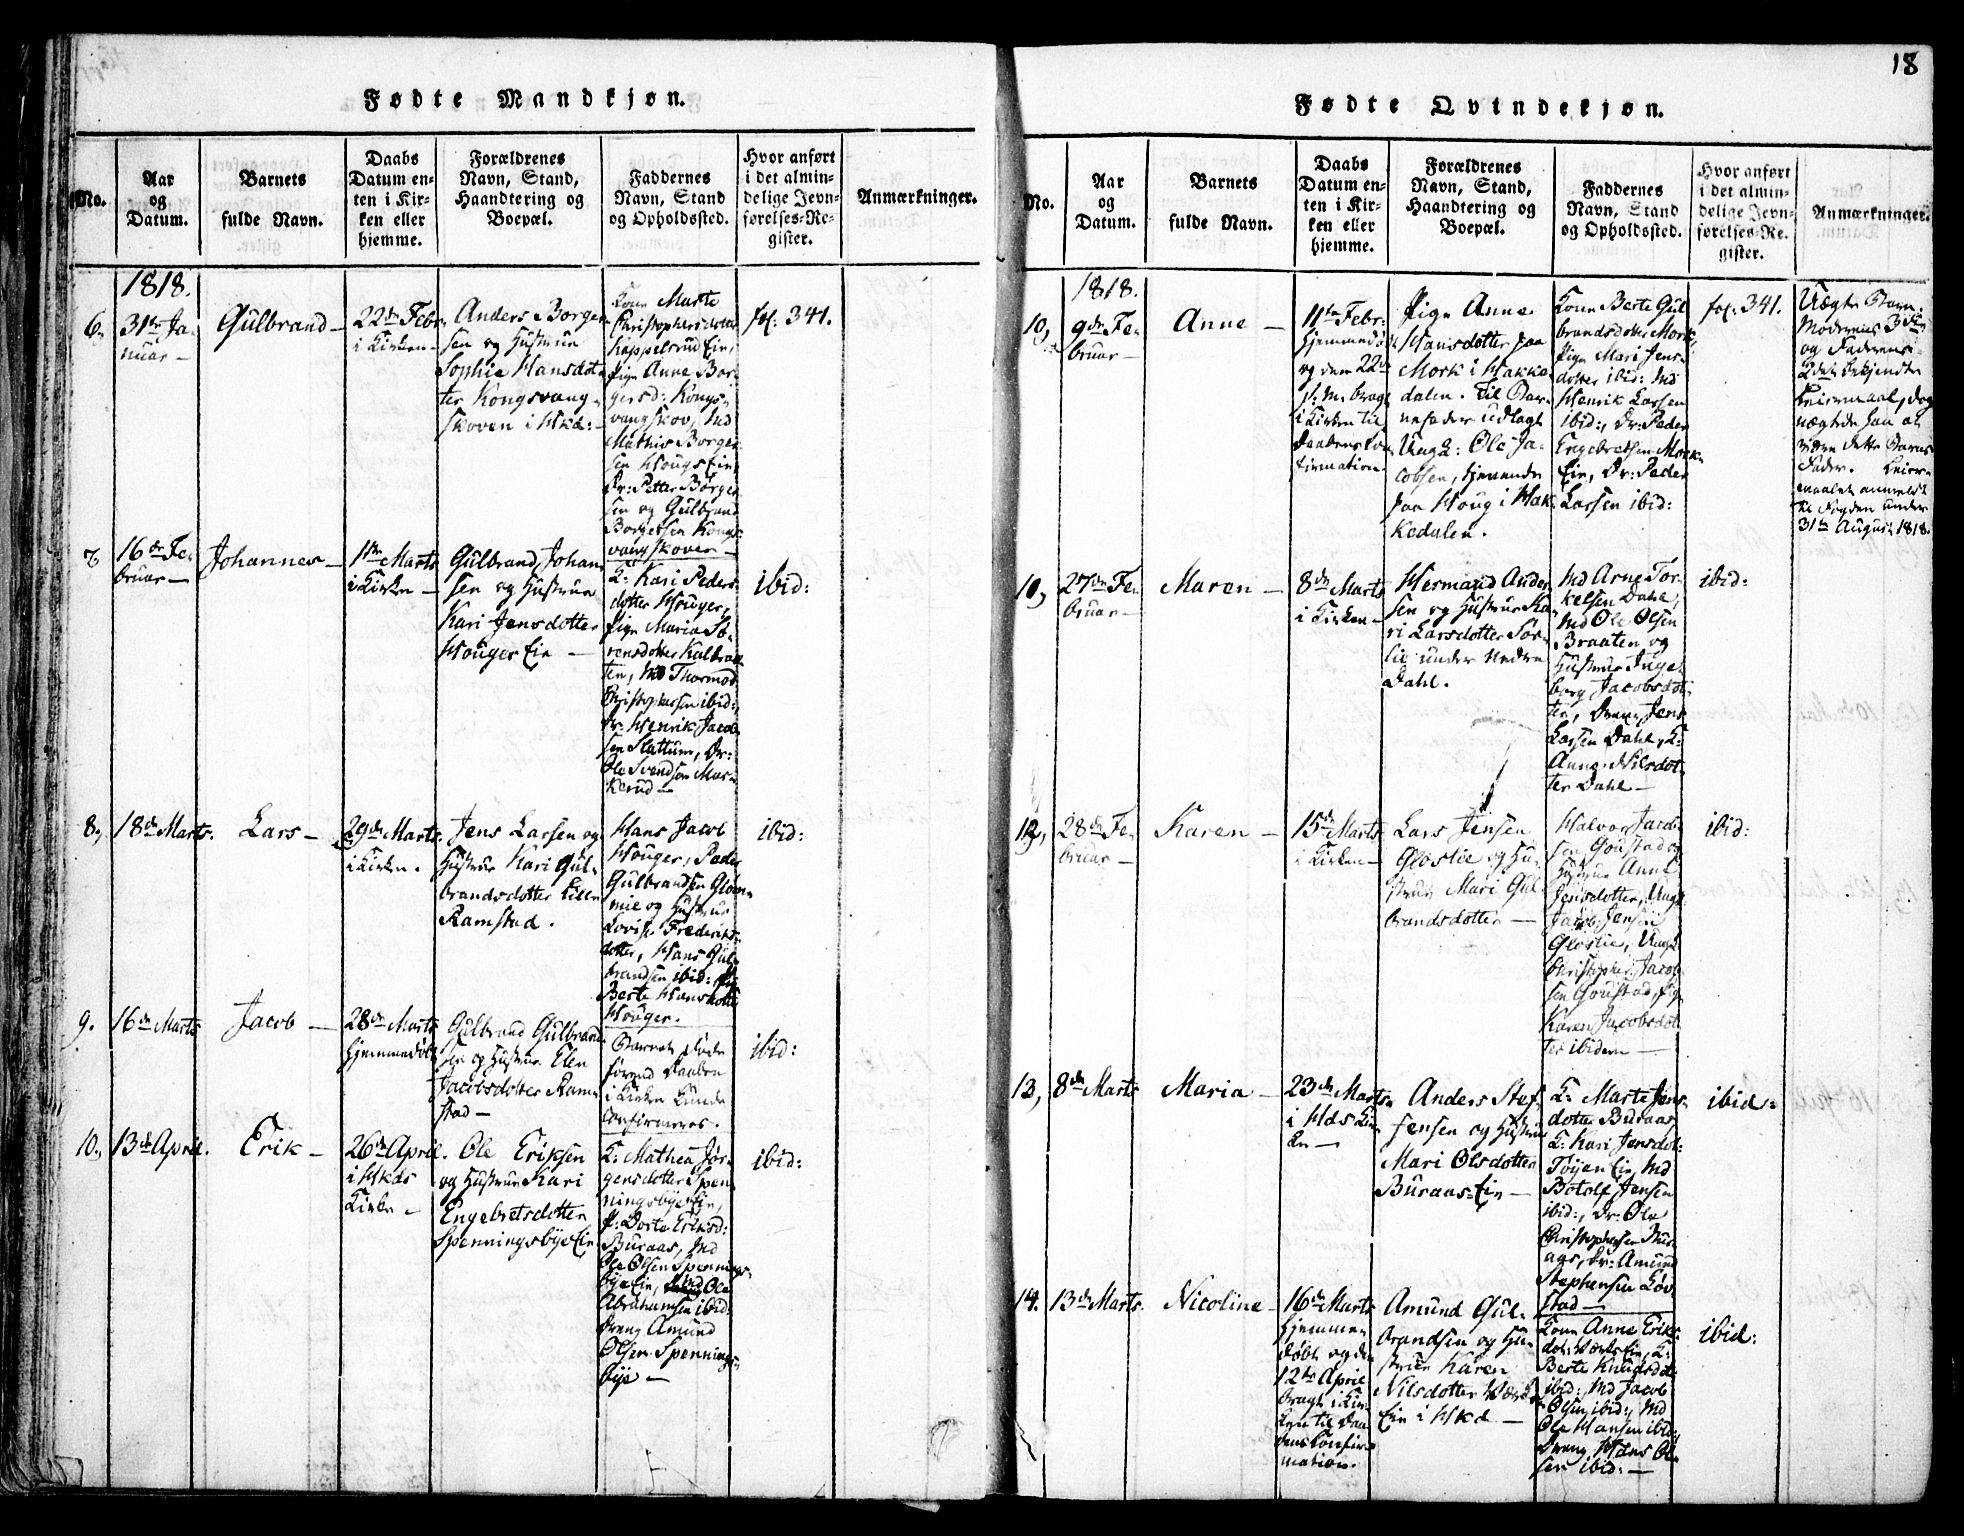 18
Fødte Mandkjøn.
No.
Aar
og
Datum.
Barnets
fulde Navn.
Daabs
Datum en-
ten i Kir-
ken eller
hjemme.
Forældrenes
Navn, Stand,
Haandtering og
Boepæl.
Faddernes
Navn, Stand
og Opholdssted.
Hvor anført
i det almin-
delige Jevn-
førelses-Re-
gister.
Anmærkninger.
1818.
6.
31te Ja-
nuar —
Gulbrand —
22de Febr.
i Kirken —
Anders Borger-
sen og Hustrue
Sophie Hansdot-
ter Kongsvang-
skoven i Hkd: —
Kone Marte
Christophersdotter
Kappelsrud Eie,
Pige Anne Bor-
gersd: Kongs-
vangskov, Md
Mathis Borger-
sen Hougs Eie,
Dr: Petter Borger-
sen og Gulbrand
Borgersen Kongs-
vangskoven —
fol: 341.
7
16de Fe-
bruar —
Johannes —
1ste Marts
i Kirken —
Gulbrand Johan-
sen og Hustrue
Kari Jensdotter
Houger Eie —
K: Kari Peders-
dotter Houger,
Pige Maria Sø-
rensdotter Kalbraa-
ten, Md Thormod
Christophersen ibid:,
Dr: Henrik Jacob-
sen Slattum, Dr:
Ole Svendsen Mar-
kerud —
ibid:
8.,
18de Marts.
Lars —
29de Marts.
i Kirken.
Jens Larsen og
Hustrue Kari Gul-
brandsdotter Lille
Ramstad.
Hans Jacob
Houger, Peder
Gulbrandsen Glom-
mie og Hustrue
Lovise Frederiks-
dotter, Hans Gul-
brandsen ibid: Pige
Berte Hansdotter
Houger.
ibid:
9.
16de Marts
Jacob —
28de Marts
hjemmedøbt
Gulbrand Gulbrand-
sen og Hustrue Elen
Jacobsdotter Ram-
stad —
Barnet døde
førend Daaben
i Kirken kunde
confirmeres.
ibid:
10.,
13de April.
Erik —
26de April.
i Hkds
Kirke —
Ole Eriksen
og Hustrue Kari
Engebretsdotter
Spenningsbye Eie
K: Mathea Jør-
gensdotter Spen-
ningsbye Eie,
P: Dorte Eriksd:
Buraas, Md
Ole Olsen Spennings-
bye Eie, Ole
Abrahamsen ibid:
Dreng Amund
Olsen Spennings-
bye —
ibid:
Fødte Qvindekjøn.
No.
Aar
og
Datum.
Barnets
fulde Navn.
Daabs
Datum en-
ten i Kir-
ken eller
hjemme.
Forældrenes
Navn, Stand,
Haandtering og
Boepæl.
Faddernes
Navn, Stand
og Opholdssted.
Hvor anført
i det almin-
delige Jevn-
førelses-Re-
gister.
Anmærkninger.
1818.
10,
9de Fe-
bruar —
Anne —
11te Febr:
hjemmedøbt
og den 22de
s: M: bragt
i Kirken til
Daabens Con-
firmation
Pige Anne
Hansdotter paa
Mork i Hakke-
dalen. Til Bar-
nefader udlagt
Ungk: Ole Ja-
cobsen, tjenende
paa Houg i Hak-
kedalen.
Kone Berte Gul-
brandsdotter Mork,
Pige Mari Jens-
dotter ibid: Md
Henrik Larsen
ibid:, Dr: Peder
Engebretsen Mork-
Eie, Dr: Peder
Larsen ibid:
fol: 341.
Uægte Barn.
Moderens 3die
og Faderens
2det bekjendte
Leiermaal, dog
nægtede han at
være dette Barns
Fader. Leier-
maalet anmeldt
til Fogden under
31te August 1818.
10,
27de Fe-
bruar —
Maren —
8de Marts
i Kirken —
Hermand Ander-
sen og Hustrue Ka-
ri Larsdotter Sør-
lie under nedre
Dahl.
Md Arne Tor-
kelsen Dahl,
Md Ole Olsen
Braaten og
Hustrue Inge-
borg Jacobsdot-
ter, Dreng Jens
Larsen Dahl, K:
Anne Nilsdot-
ter Dahl —
ibid:
12,
28de Fe-
bruar —
Karen —
15de Marts
i Kirken —
Lars Jensen
Gloslie og Hu-
strue Mari Gul-
brandsdotter —
Halvor Jacob-
sen Goustad og
Hustrue Anne
Jensdotter, Ungk
Jacob Jensen
Gloslie, Ungk
Christopher Jacob-
sen Goustad, Pige
Karen Jacobsdot-
ter ibidem —
ibid:
13,
8de Marts
Maria —
23de Marts
i Hkds Kir-
ke —
Anders Stef-
fensen og Hustrue
Mari Olsdotter
Buraas-Eie —
K: Marte Jens-
dotter Buraas,
K: Kari Jensdot-
Tøyen Eie, Md
Botolf Jensen
ibid:, Dr: Ole
Christophersen Bur-
aas, Dr: Amund
Stephensen Løv-
stad —
ibid:
14.
13de Marts.
Nicoline —
16de Marts
hjemme-
døbt og den
12te April
bragt i Kir-
ken til Daa-
bens Confir-
mation.
Amund Gul-
brandsen og Hu-
strue Karen
Nilsdotter
Eie i Hkd —
Kone Anne Eriks-
dot: Eie, K:
Berte Knudsdot:
ibid:, Md Jacob
Olsen ibid:, Md
Ole Hansen ibid:,
Dreng Hans Ol-
sen ibid: —
ibid: